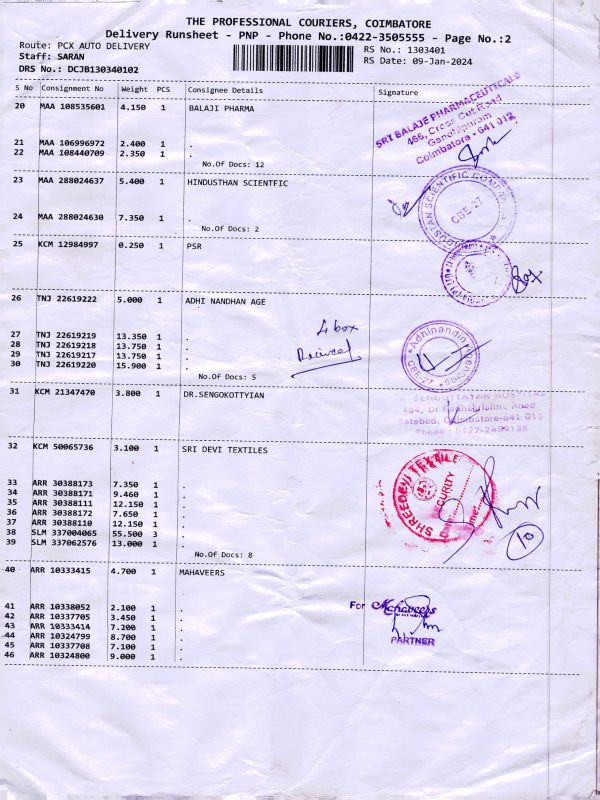 THE PROFESSIONAL COURIERS, COIMBATORE
Delivery Runsheet - PNP - Phone No.:0422-3505555 - Page No.:2
Route: PCX AUTO DELIVERY
RS No.: 1303401
Staff: SARAN
RS Date: 09-Jan-2024
DRS No.: DCJB130340102
S No Consignment No Weight PCS Consignee Details Signature
20 MAA 108535601 4.150 1 BALAJI PHARMA
SRI BALAJE PHARMACEUTICALS
466, Cross Cut Road
Gandhipuram
Coimbatore - 641 012
21 MAA 106996972 2.400 1 .
22 MAA 108440709 2.350 1 .
No.Of Docs: 12
23 MAA 288024637 5.400 1 HINDUSTHAN SCIENTFIC
CBE-27
24 MAA 288024630 7.350 1 .
No.Of Docs: 2
25 KCM 12984997 0.250 1 PSR
26 TNJ 22619222 5.000 1 ADHI NANDHAN AGE
4 box
Received
27 TNJ 22619219 13.350 1 .
28 TNJ 22619218 13.750 1 .
29 TNJ 22619217 13.750 1 .
30 TNJ 22619220 15.900 1 .
No.Of Docs: 5
CBE-27
31 KCM 21347470 3.800 1 DR.SENGOKOTTYIAN
32 KCM 50065736 3.100 1 SRI DEVI TEXTILES
SHREEDEVI TEXTILE
SECURITY
33 ARR 30388173 7.350 1 .
34 ARR 30388171 9.460 1 .
35 ARR 30388111 12.150 1 .
36 ARR 30388172 7.650 1 .
37 ARR 30388110 12.150 1 .
38 SLM 337004065 55.500 3 .
39 SLM 337062576 13.000 1 .
No.Of Docs: 8
10
40 ARR 10333415 4.700 1 MAHAVEERS
41 ARR 10338052 2.100 1 .
42 ARR 10337705 3.450 1 .
43 ARR 10333414 7.200 1 .
44 ARR 10324799 8.700 1 .
45 ARR 10337708 7.100 1 .
46 ARR 10324800 9.000 1 .
For Mahaveers
PARTNER